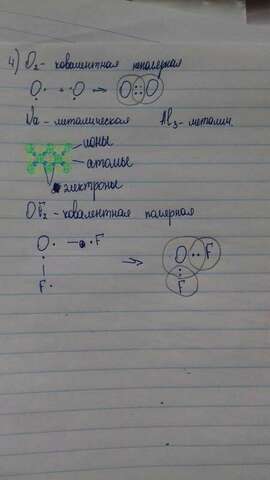 4) O₂ - ковалентная неполярная
O + O → O : : O
Na - металическая Al₃ - металич.
ионы
атомы
электроны
OF₂ - ковалентная палярная
O · → · F ⇒ O : F
F · F